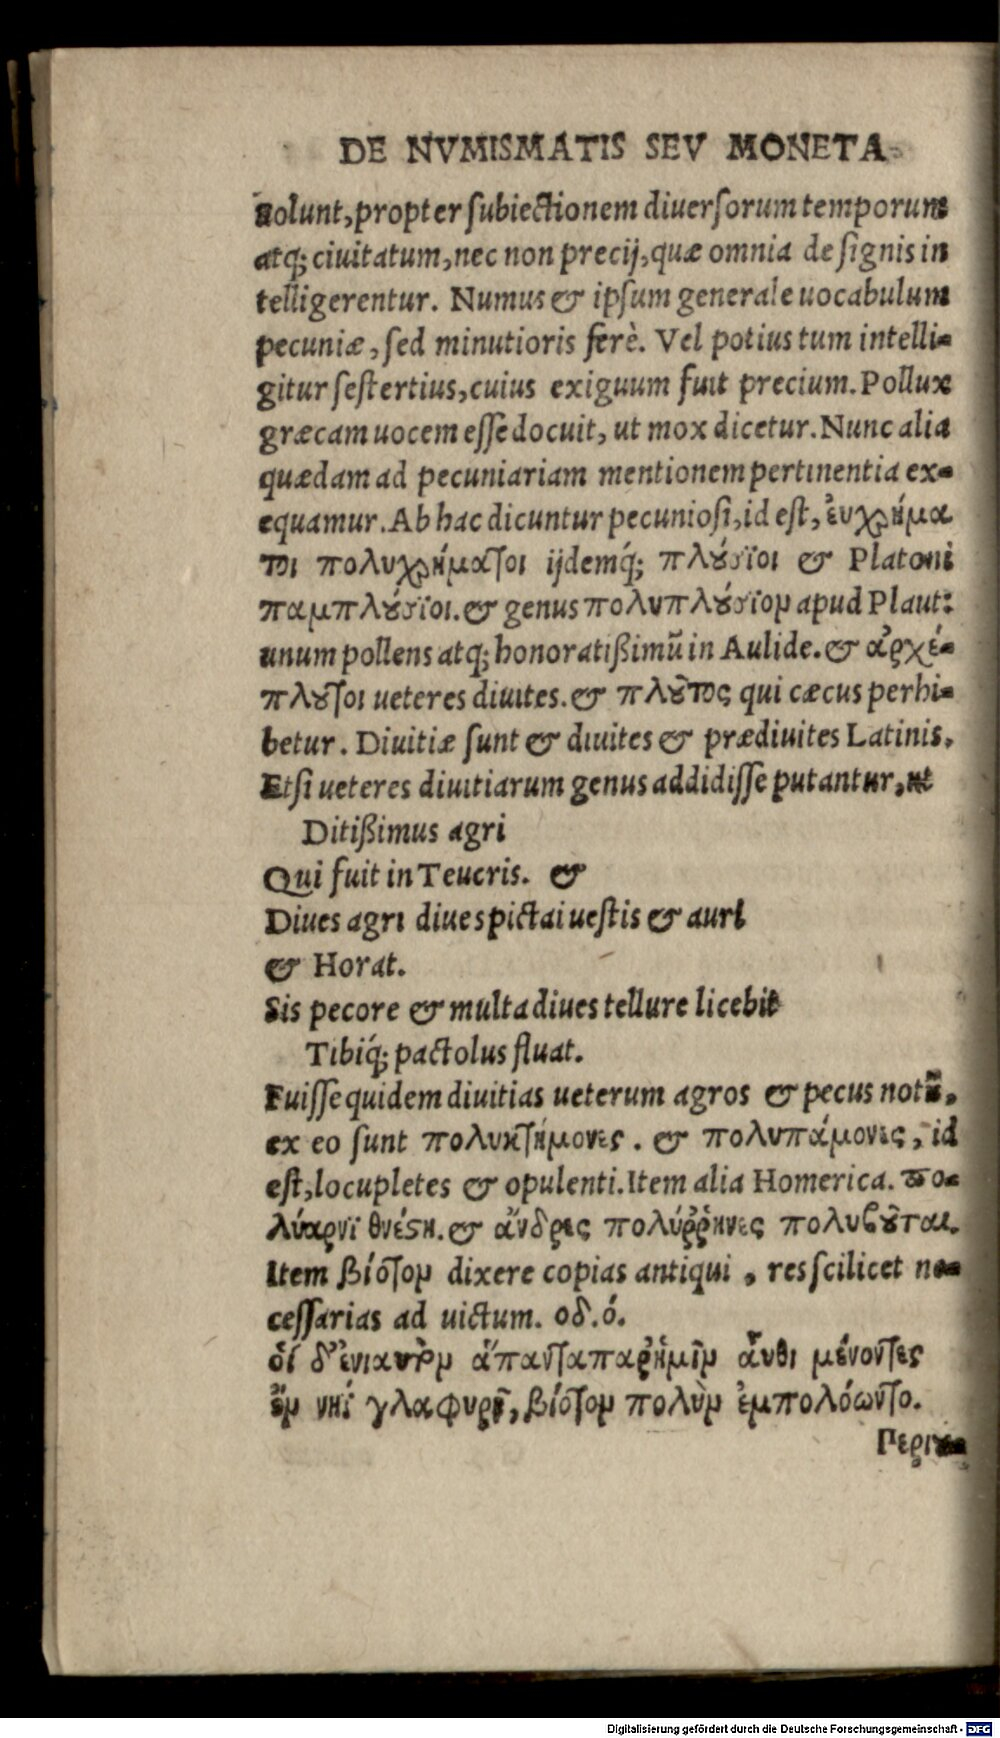 DE NVMISMATIS SEV MONETA
nolunt, propter subiectionem diuersorum temporum
atq; ciuitatum, nec non precij, quæ omnia de signis in
telligerentur. Numus & ipsum generale uocabulum
pecuniæ, sed minutioris ferè. Vel potius tum intelli-
gitur sestertius, cuius exiguum fuit precium. Pollux
græcam uocem esse docuit, ut mox dicetur. Nunc alia
quædam ad pecuniariam mentionem pertinentia ex-
equamur. Ab hac dicuntur pecuniosi, id est, ἐυχρήμα
τοι πολυχρήματοι ijdemq́; πλούσϊοι & Platoni
παμπλούσϊοι. & genus πολυπλούσϊομ apud Plaut:
unum pollens atq; honoratißimũ in Aulide. & ἀρχέ-
πλουτοι ueteres diuites. & πλοῦτος qui cæcus perhi-
betur. Diuitiæ sunt & diuites & prædiuites Latinis.
Etsi ueteres diuitiarum genus addidisse putantur, ut
Ditißimus agri
Qui fuit in Teucris. &
Diues agri diues pictai uestis & auri
& Horat.
Sis pecore & multa diues tellure licebit
Tibiq́; pactolus fluat.
Fuisse quidem diuitias ueterum agros & pecus notũ,
ex eo sunt πολυκτήμονες. & πολυπάμονες, id
est, locupletes & opulenti. Item alia Homerica. πο-
λύαρνϊ θυέστη. & ἄνδρες πολύῤῥηνες πολυβοῦται.
Item βίοτομ dixere copias antiqui, res scilicet ne-
cessarias ad uictum. οδ. ό.
οἱ δ' ἐνιαυτὸμ ἅπαντα παρ' ἡμῖμ αὖθι μένοντες
ἐμ νηῒ γλαφυρῇ, βίοτομ πολὺμ ἐμπολόωντο.
Digitalisierung gefördert durch die Deutsche Forschungsgemeinschaft - DFG